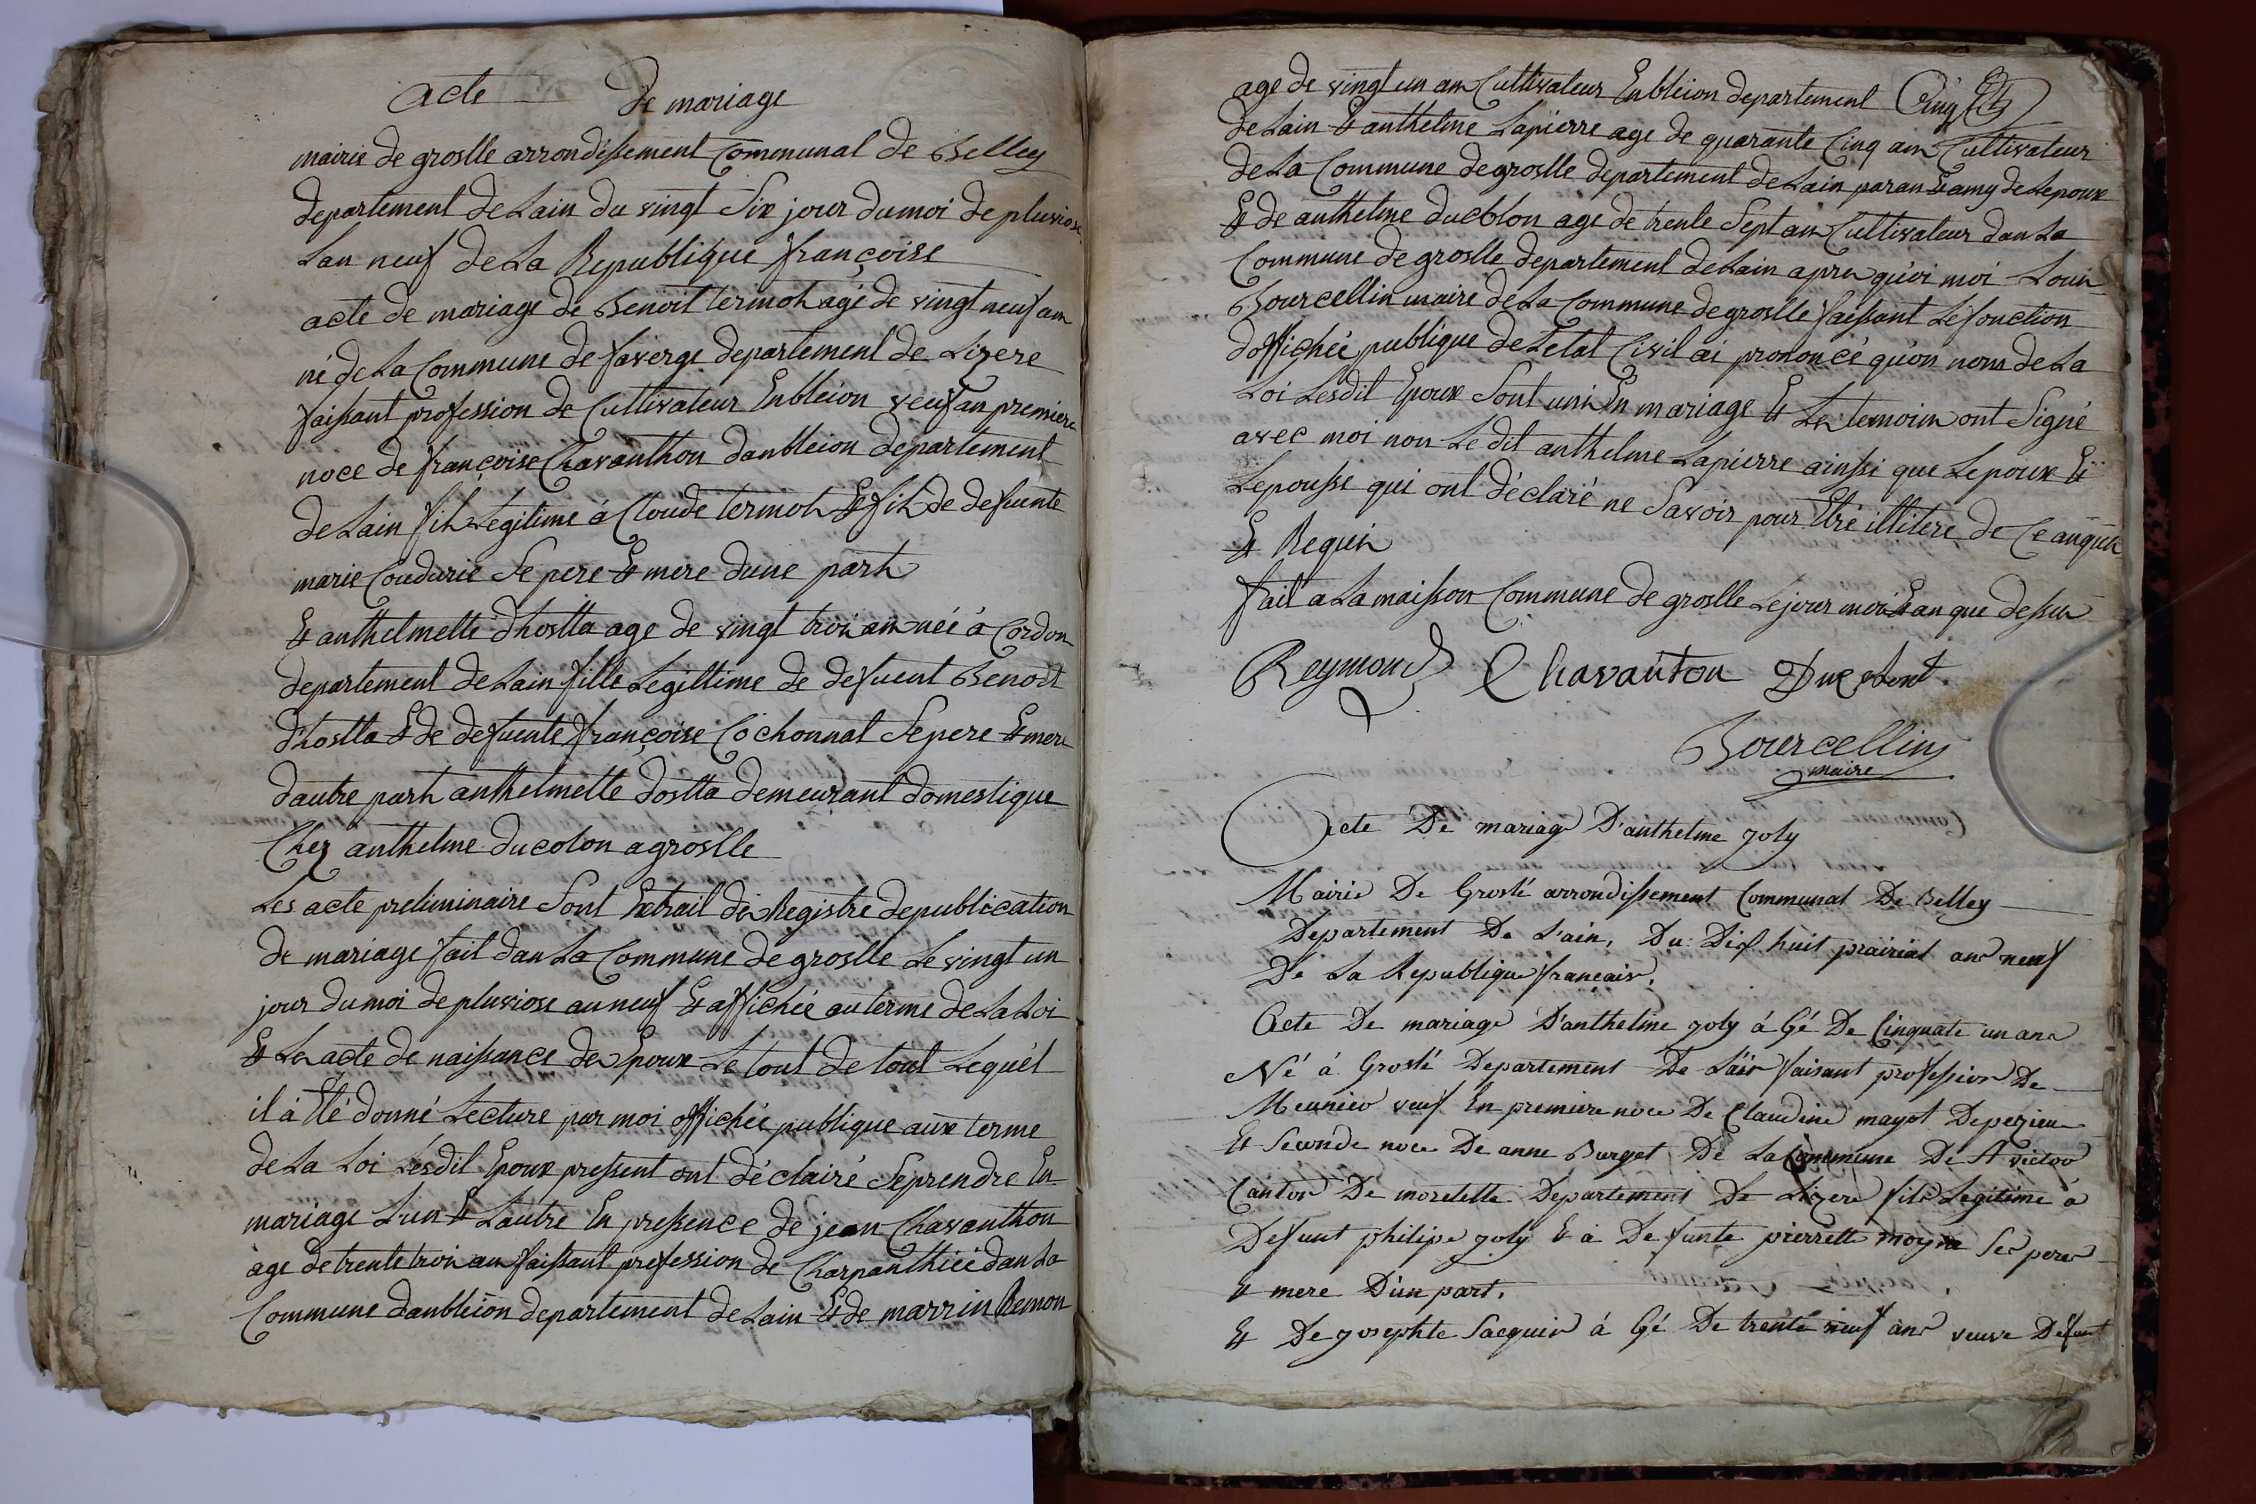 acte de mariage
mairie de groslle arrondissement Communal de Belley
departement de Lain du vingt Six jour du moi de pluviose
Lan neuf de La Republique françoise
acte de mariage de Benoit termoh agé de vingt neuf an
né de La Commune de faverge departement de Lizere
faissant profession de Cultivateur Enbleion veuf an premiere
noce de françoise Chavanthon danbleion departement
de Lain fih Legitime á Cloude termoh & fih de defuente
marie Coudurie Se pere & mere dune parh
& anthelmette dhostta age de vingt troi an née á Cordon
departement de Lain fille Legittime de defuent Benoit
dhostta & de defuente françoise Cochonnat Se pere & mere
dautre parh anthelmette dostta demeurant domestique
Chez anthelme ducolon a groslle
Les acte preliminaire Sont Extrait de Registre de publication
de mariage fait dan La Commune de groslle Le vingt un
jour du moi de pluviose an neuf & affichée au terme de La Loi
& Le acte de naissance de Epoux Le tout de tout Lequél
il á Eté donné Lecture par moi offichée publique aux terme
de La Loi Lésdit Epoux pressent ont déclairé Seprendre En
mariage Lun & Lautre En pressence de jean Chavanthon
age de trente troi an faissant profession de Charpanthiée dan La
Commune danbleion departement de Lain & de marrin Remon
age de vingt un an Cultivateur Enbleion departement Cinq
de Lain & anthelme Lapierre age de quarante Cinq an Cultivateur
de La Commune de groslle departement de Lain paran & amy de Lepoux
& de anthelme ducblon age de trente Sept an Cultivateur dan La
Commune de groslle departement de Lain apre quoi moi Loui
Bourcellin maire de La Commune de groslle faissant Le fonction
doffichée publique de Letat Civil ai prononcé quon nom de La
Loi Lesdit Epoux Sont uni En mariage & Le temoin ont Signé
avec moi non Le dit anthelme Lapierre ainssi que Lepoux &
Lepousse qui ont déclaré ne Savoir pour Etré illitere de Ce anquis
& Requis
fait a La maisson Commune de groslle Le jour moi & an que dessu
Reymond Chavanton Ducolont
Bourcellin
maire
Acte De mariage D'anthelme joly
Mairie De Groslé arrondissement Communal De Belley
Departement De L'ain, Du Dix huit prairial an neuf
De La Republique français.
Acte De mariage D'anthelme joly á Gé De Cinquate un an
Né á Groslé Departement De L'ain faisant profession De
Meunier veuf En premiere noce De Claudine mayot De pezieu
Et Seconde noce De anne Burget De La Commune De St victor
Canton De morettelle Departement De Lizere fils Legitime á
Defunt philipe joly & á Defunte pierrette moyne Ses pere
& mere D'un part.
& De josephte Jacquin á Gé De trente neuf ans veuve Defunt